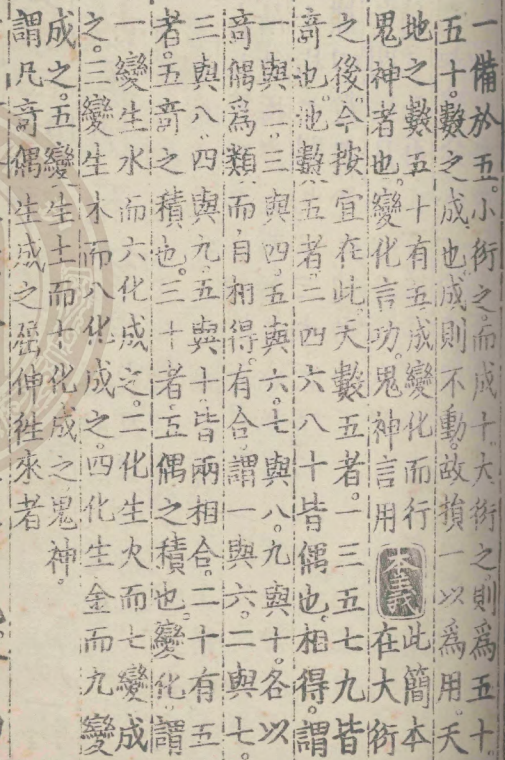 一備於五。小衍之。而成十。大衍之。則爲五十。
五十。數之成也。成則不動。故損一以爲用。天
地之數五十有五。成變化而行
鬼神者也。變化言功。鬼神言用 本義 此簡本在大衍
之後。今按宜在此。天數五者。一三五七九皆
竒也。地數五者。二四六八十皆偶也。相得。謂
一與二。三與四。五與六。七與八。九與十。各以
竒偶爲類。而自相得。有合。謂一與六。二與七。
三與八。四與九。五與十。皆兩相合。二十有五
者。五竒之積也。三十者。五偶之積也。變化。謂
一變生水而六化成之。二化生火而七變成
之。三變生木而八化成之。四化生金而九變
成之。五變生土而十化成之。鬼神。
謂凡竒偶生成之屈伸徃來者